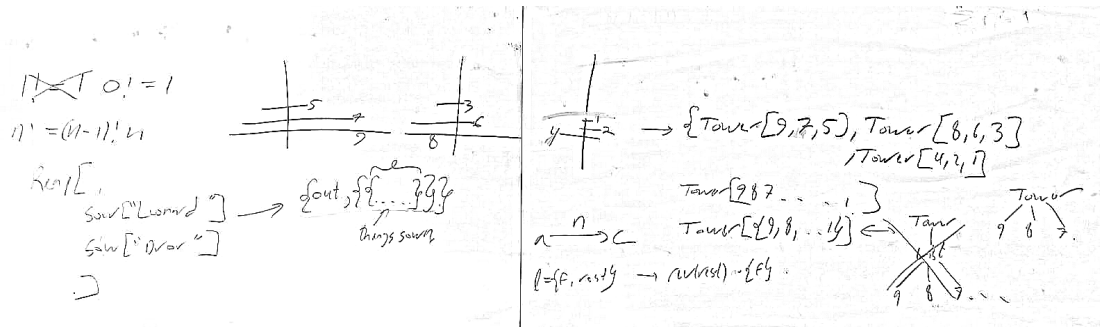 0! = 1
n! = (n-1)! n
Reap[,
Sow["Leonard"]
Sow["Dror"]
]
→ {out, {{....}}}
e
things sown
5
7
9
3
6
8
1
2
4
→ {Tower[9,7,5], Tower[8,6,3]
,Tower[4,2,1]
Tower[987.....,]
Tower[{9,8,..1}] ↔
a →n C
l={F, rest} → rev(rest) {F}
Tower
List
9 8 7...
Tower
9 8 7.